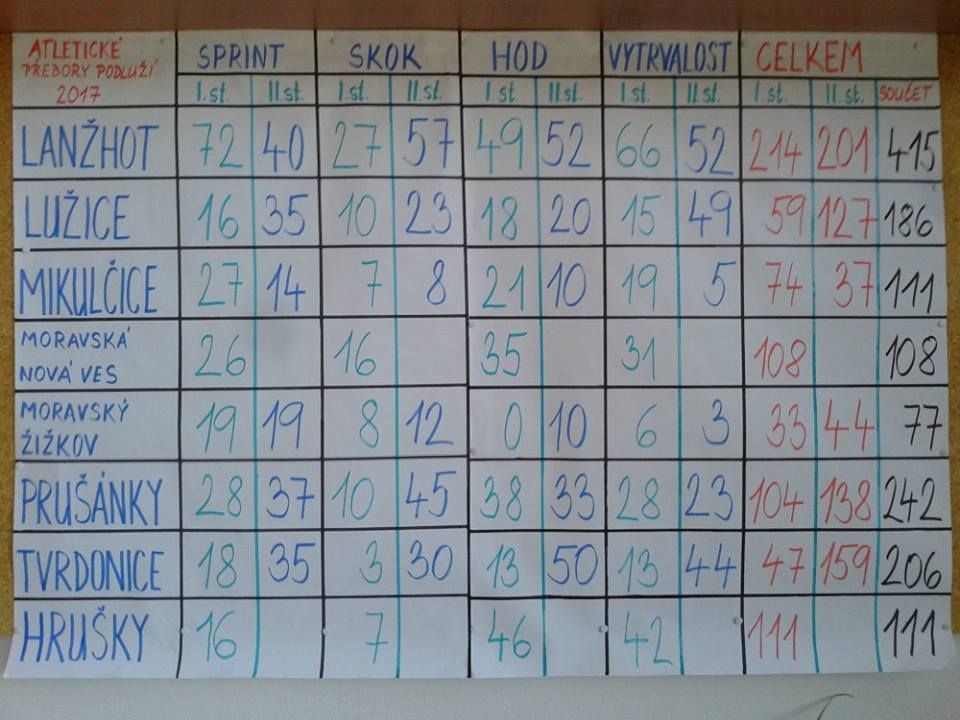 ATLETICKÉ SPRINT SKOK HOD VYTRVALOST CELKEM
PŘEBORY PODLUŽÍ
2017 I.st. II.st. I.st. II.st. I.st. II.st. I.st. II.st. I.st. II.st. SOUČET
LANŽHOT 72 40 27 57 49 52 66 52 214 201 415
LUŽICE 16 35 10 23 18 20 15 49 59 127 186
MIKULČICE 27 14 7 8 21 10 19 5 74 37 111
MORAVSKÁ
NOVÁ VES 26 16 35 31 108 108
MORAVSKÝ
ŽIŽKOV 19 19 8 12 0 10 6 3 33 44 77
PRUŠÁNKY 28 37 10 45 38 33 28 23 104 138 242
TVRDONICE 18 35 3 30 13 50 13 44 47 159 206
HRUŠKY 16 7 46 42 111 111